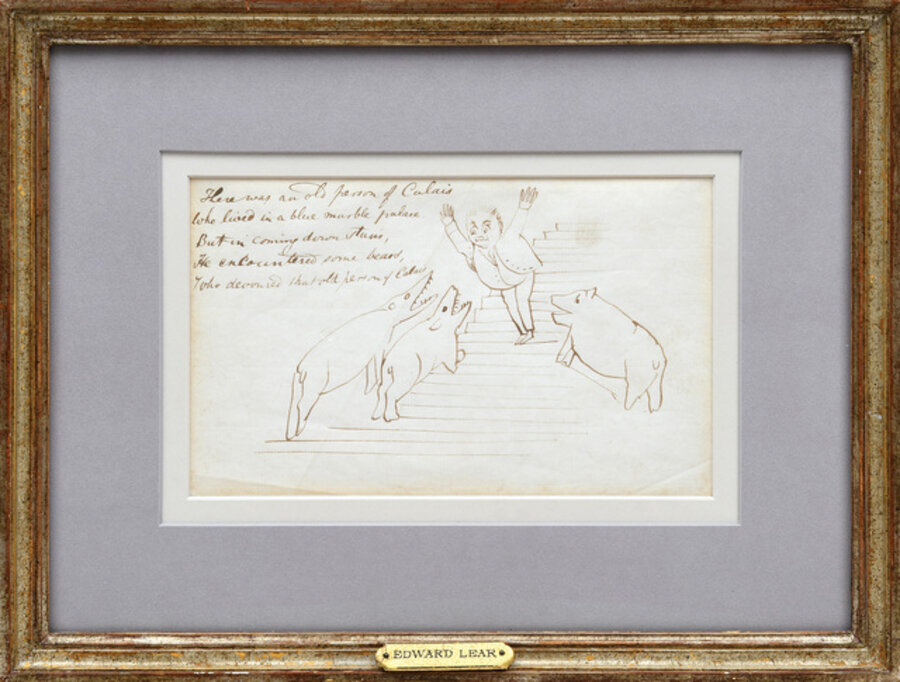 There was an old person of Calais
who lived in a blue marble palace
But in coming down stairs,
He encountered some bears,
Who devoured that old person of Calais
EDWARD LEAR